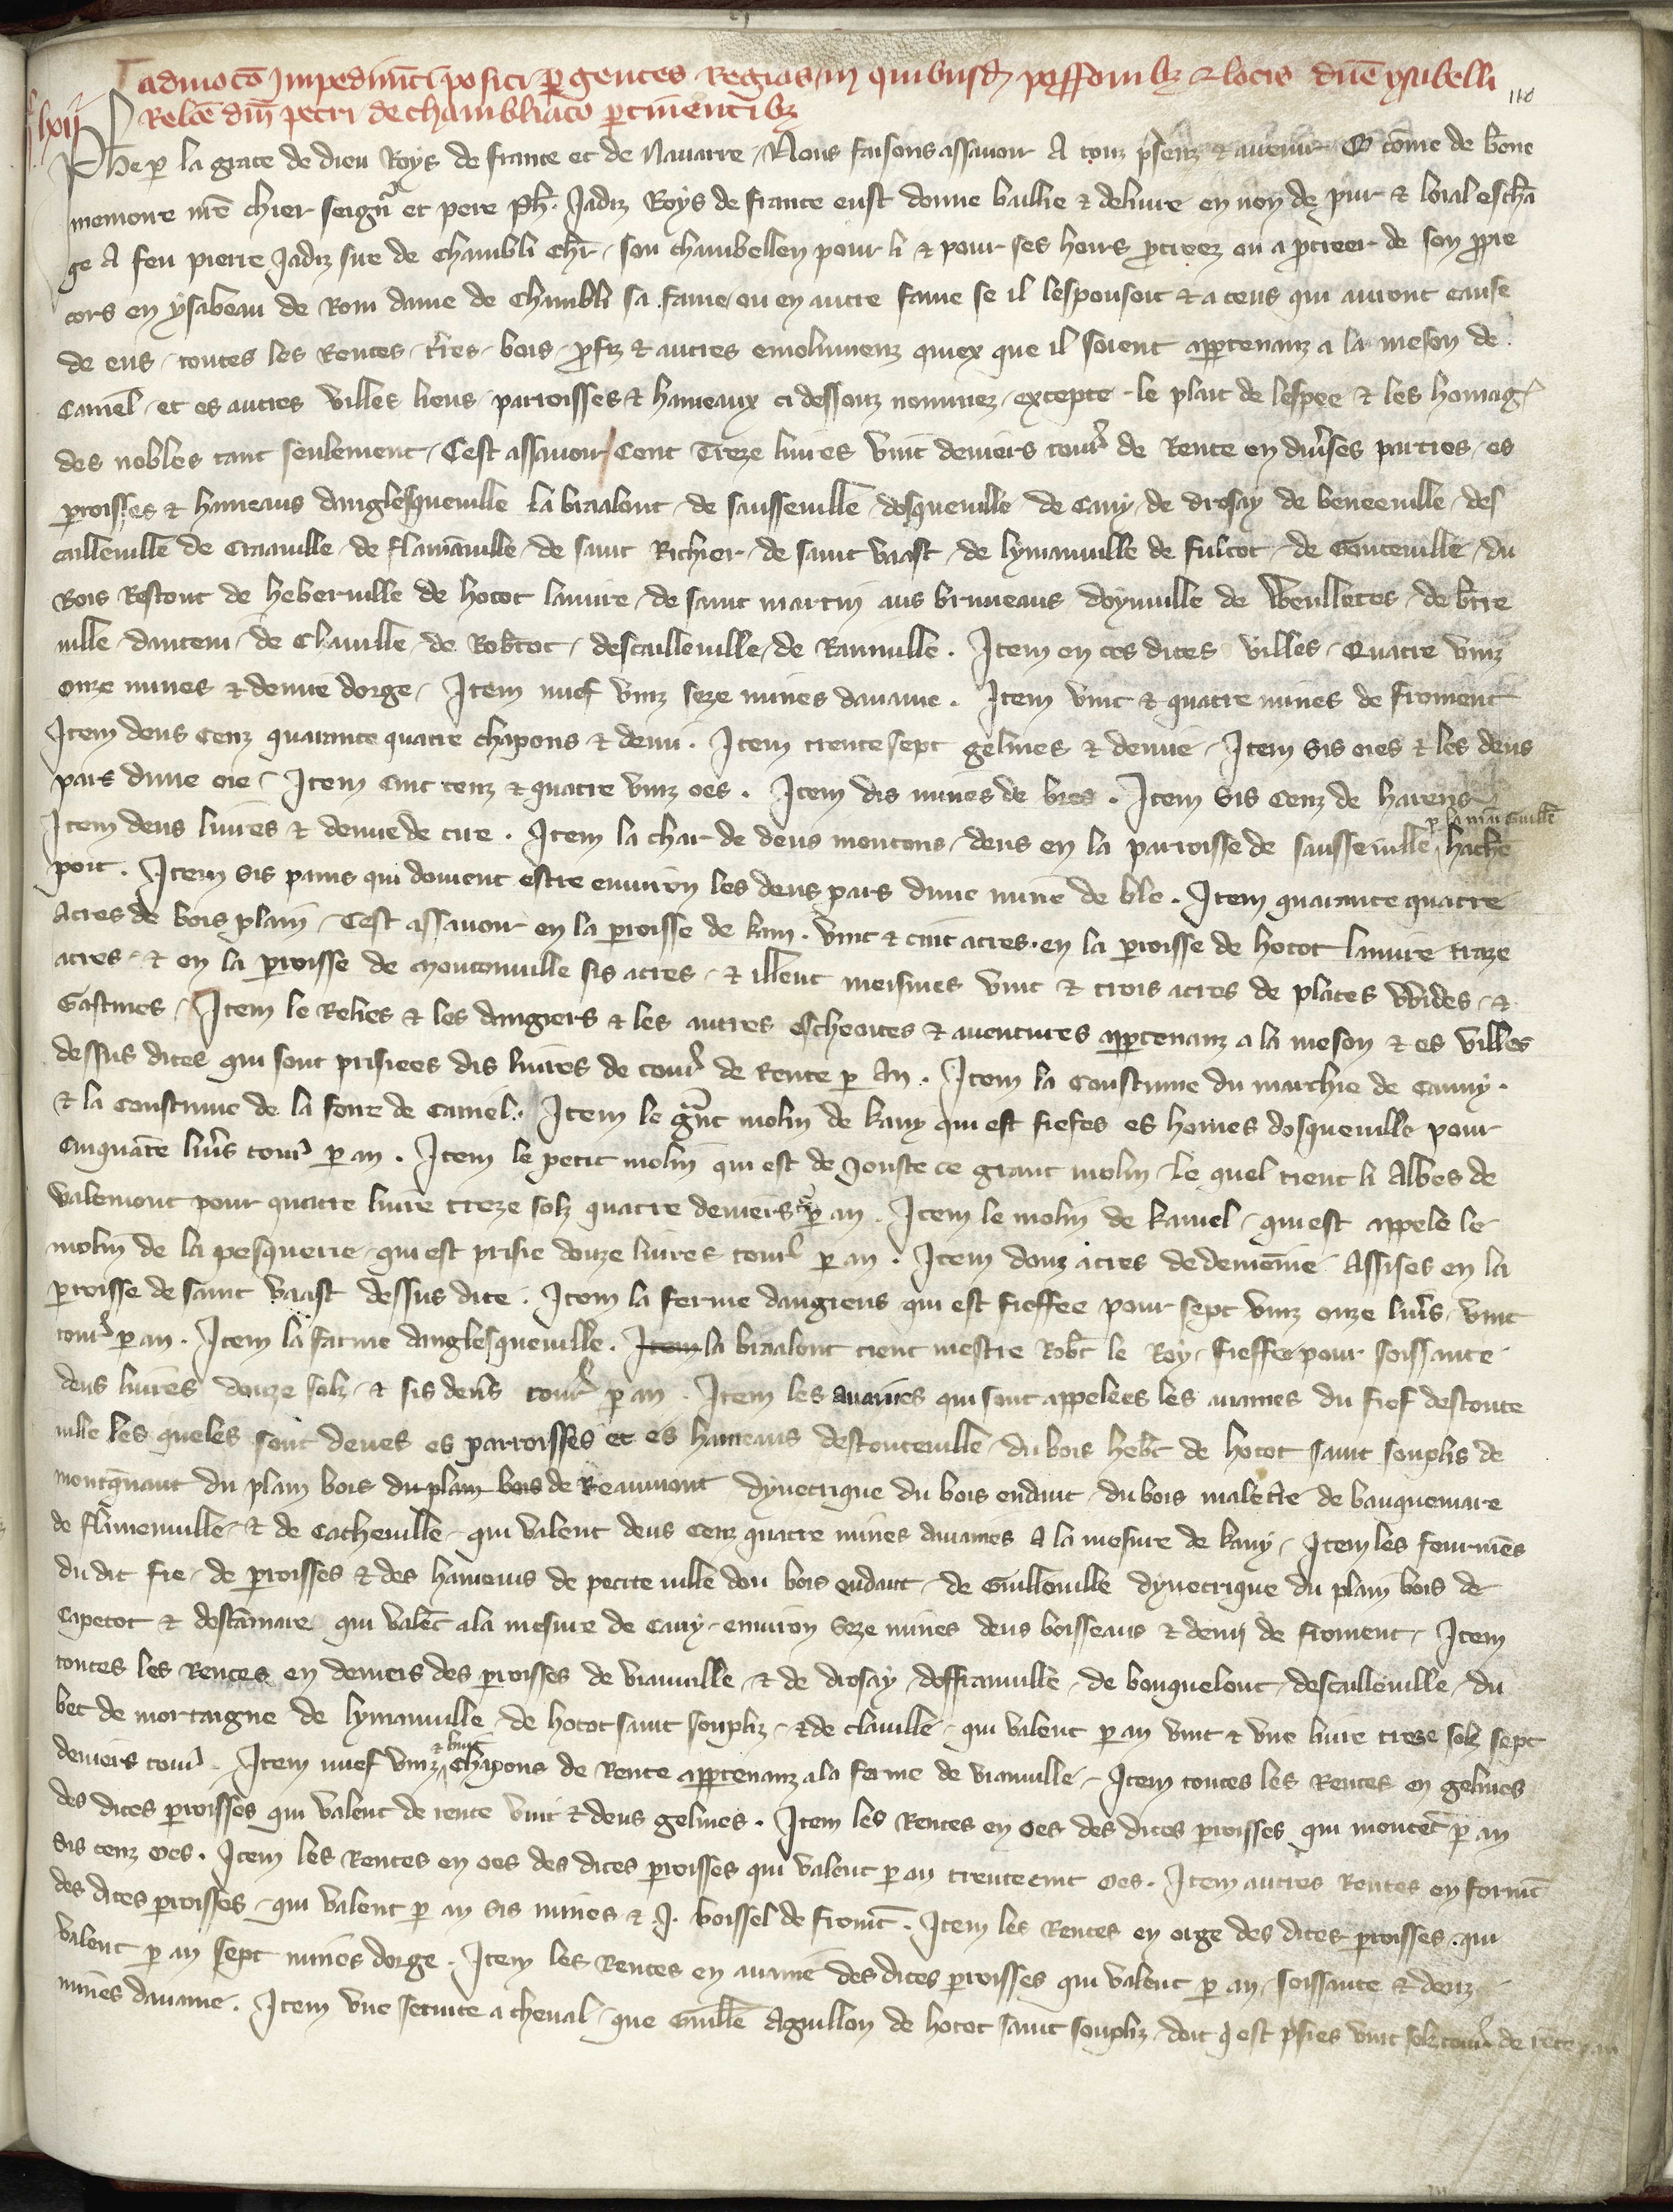 admoco Impedimti positi per gentes Regias in quibusd personibz & locis dne ysabelli
118
lxii
Relce dni petri de chambliaco pertinentibz
Phe p la grace de dieu Roys de france et de Navarre. Nous faisons assavoir A touz psenz & avenir Q come de bone
memoire nre chier seignr et pere Ph. Jadiz Roys de france eust donne baillie & delivre en non de pur & loial escha
ge A feu pierre Jadiz sire de chambli chr. son chambellen pour li & pour ses hoirs pcreez ou a pcreer de son ppre
cors en ysabeau de Rom dame de chambli sa fame ou en autre fame se il lespousoit & a ceus qui auront cause
de eus, toutes les Rentes, tres, bois, profz & autres emolumenz quiex que il soient apptenanz a la meson de
Caniel. et es autres villes lieus parroisses & hameaux ci dessouz nommez, excepte le plait de lespee & les homag
des nobles tant seulement, Cest assavoir Cent Treze livres vint deniers tour de Rente en divses parties, es
proisses & hameaus danglesqueville la braalont de sausseville dosqueville de Cany de drosay de beneeville, des
cailleville de Craaville de flamaville de saint Richier de saint vaast de lymanville de fultot de Gonteville du
Bois Restout de heberville de hotot lauvre de saint martin aus bruneaus doynville de Veulletes de btre
ville dautem de Claville de Robtot, descailleville de Rainville. Item en ces dites villes, Quatre vinz
onze mines & demie dorge, Item nuef vinz seze mines davaine. Item vint & quatre mines de froment
Item deus Cenz quarante quatre chapons & demi. Item trente sept gelines & demie. Item sis oies & les deus
pars dune oie, Item cinc cenz & quatre vinz oes. Item dis mines de bres. Item sis Cenz de harens
p la main Guille
Item deus livres & demie de cire. Item la char de deus moutons, deus en la parroisse de sausseville hache
poit. Item sis pains qui doivent estre environ les deus pars dune mine de ble. Item quarante quatre
acres de bois plain, Cest assavoir en la proisse de kani. vint & cinc acres. en la proisse de hotot lauvre traze
acres, & en la proisse de Moutonville sis acres, & illeuc meismes vint & trois acres de places vuides, &
Gastines, Item le Reliés & les dangiers & les autres escheoites & aventures apptenanz a la meson & es villes
dessus dites qui sont prisiees dis livres de tour de Rente p An. Item la Coustume du marchie de Cauny.
& la Coustume de la foire de Caniel. Item le gnt molin de kany qui est fiefes es homes dosqueville pour
Cinquate livrs tour p an. Item le petit molin qui est de Jouste ce grant molin le quel tient li Abbes de
valemont pour quatre livre treze solz quatre deniers p an. Item le molin de kaniel, qui est appele le
molin de la pesquerie, qui est prisie douze livres tour p an. Item douz acres de demeine Assises en la
proisse de saint vaast dessus dite. Item la ferme dangiens qui est fieffee pour sept vinz onze livrs, vint
tour p an. Item la farme danglesqueville. Item la braalont tient mestre Robt le Roy, fieffee pour soissante
deus livres douze solz & sis denrs tour p an. Item les avaines qui sont appelees les avaines du fief destoute
ville les queles sont deues es parroisses et es hameaus destouteville, du bois hebt de hotot saint souplis de
montgnant du plain bois du plain bois de Reaumont dynetrique du bois endait, du bois malerte de bauquemare
de flameville, & de Cacheville, qui valent deus Cenz quatre mines davaines A la mesure de kany, Item les fourmes
du dit fie, de proisses & des hameaus de petite ville dou bois endait, de Guilleville dynetrique du plain bois de
Capetot & destamare qui valet a la mesure de Cany, environ seze mines deus boisseaus & demi de froment, Item
toutes les Rentes en deniers des proisses de vianville & de drosay, doffranville, de bouquelont, descailleville, du
bec de mortaigne de lymanville, de hotot saint soupliz, & de claville, qui valent p an vint & une livre treze solz sept
& vint
deniers tour. Item nuef vinz chapons de Rente apptenanz a la ferme de vianville, Item toutes les Rentes en gelines
des dites proisses qui valent de rente vint & deus gelines. Item les Rentes en oes des dites proisses qui montet p an
sis cenz oes. Item les Rentes en oes des dites proisses qui valent p an trente cinc oes. Item autres Rentes en formt
des dites proisses, qui valent p an sis mines & .J. boissel de fromt. Item les Rentes en orge des dites proisses qui
valent p an sept mines dorge. Item les Rentes en avaine des dites proisses qui valent p an, soissante & deuz
mines davaine. Item une servite a cheval, que Guille Aguillon de hotot saint soupliz doit q est psies vint solz tour de rete p an